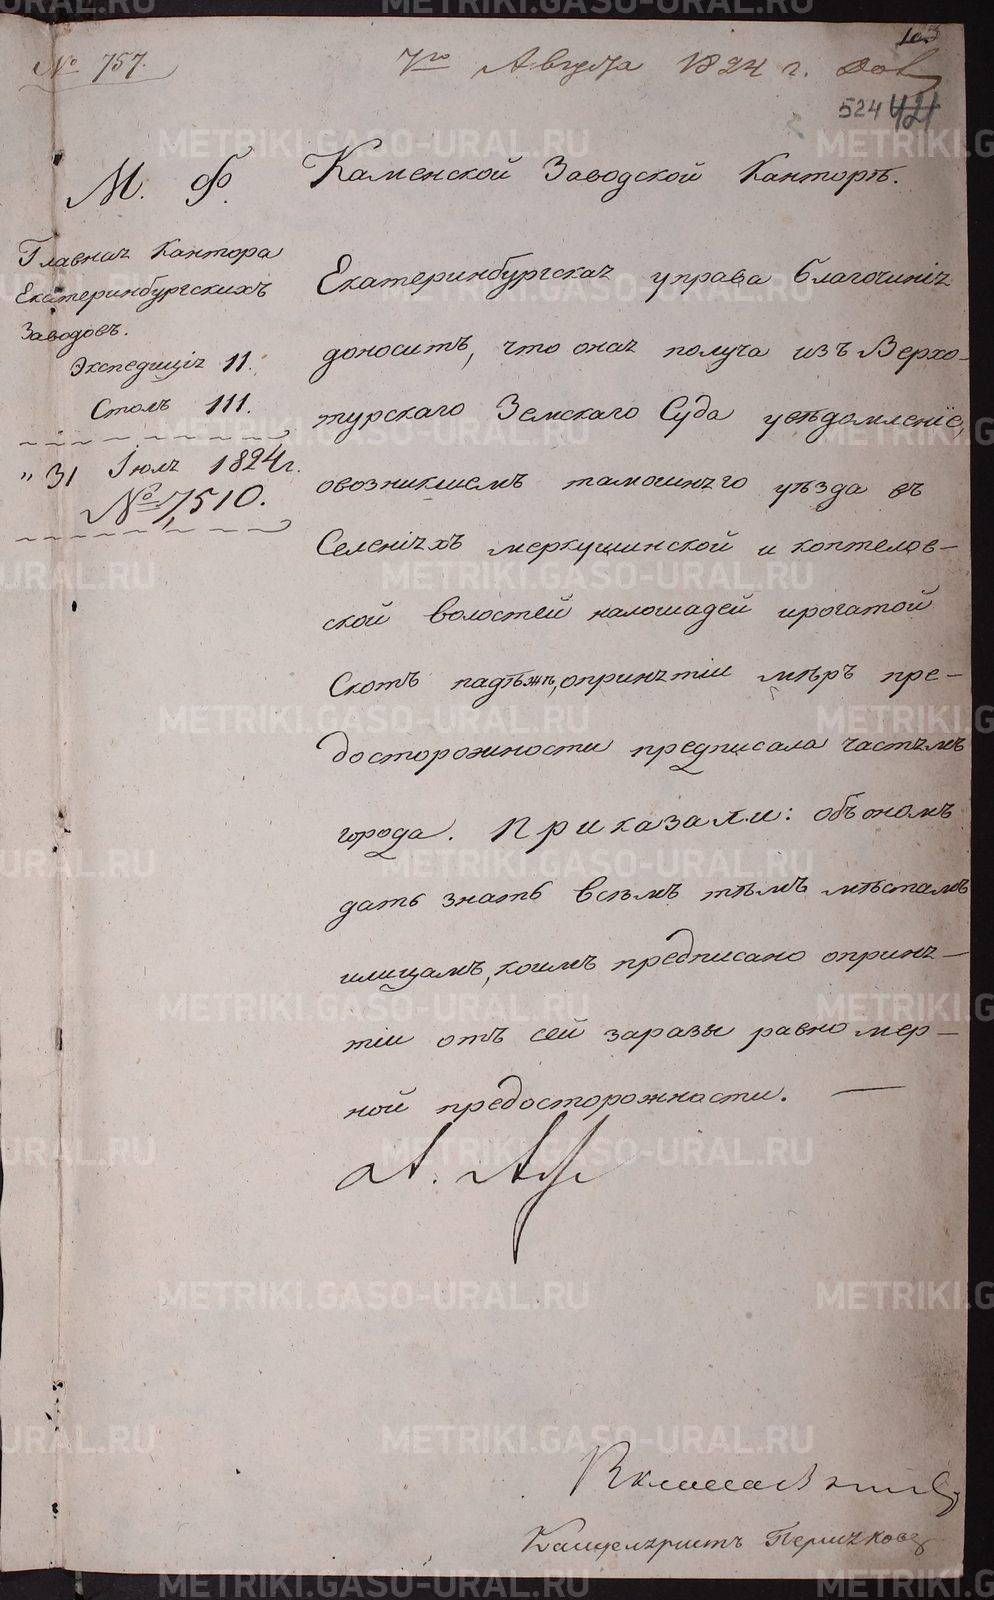 № 757.
7го Августа 1824 г.
103
524 421
М. Ф.
Главная Кантора
Екатеринбургскихъ
Заводовъ.
Экспедиція 11.
Столъ 111.
" 31 Іюля 1824 г.
№ 7510.
Каменской Заводской Канторѣ.
Екатеринбургская управа благочинія
доноситъ, что оная получа изъ Верхо-
турскаго Земскаго Суда увѣдомленіе,
овозникшемъ тамошняго уѣзда въ
Селеніяхъ меркушинской и коптелов-
ской волостей налошадей ирогатой
Скотъ падѣжѣ, опринятіи мѣръ пре-
досторожности предписала частямъ
города. Приказали: объ ономъ
дать знать всѣмъ тѣмъ мѣстамъ
илицамъ, коимъ предписано оприня-
тіи отъ сей заразы равно мер-
ной предосторожности. —
Канцеляристъ
METRIKI.GASO-URAL.RU